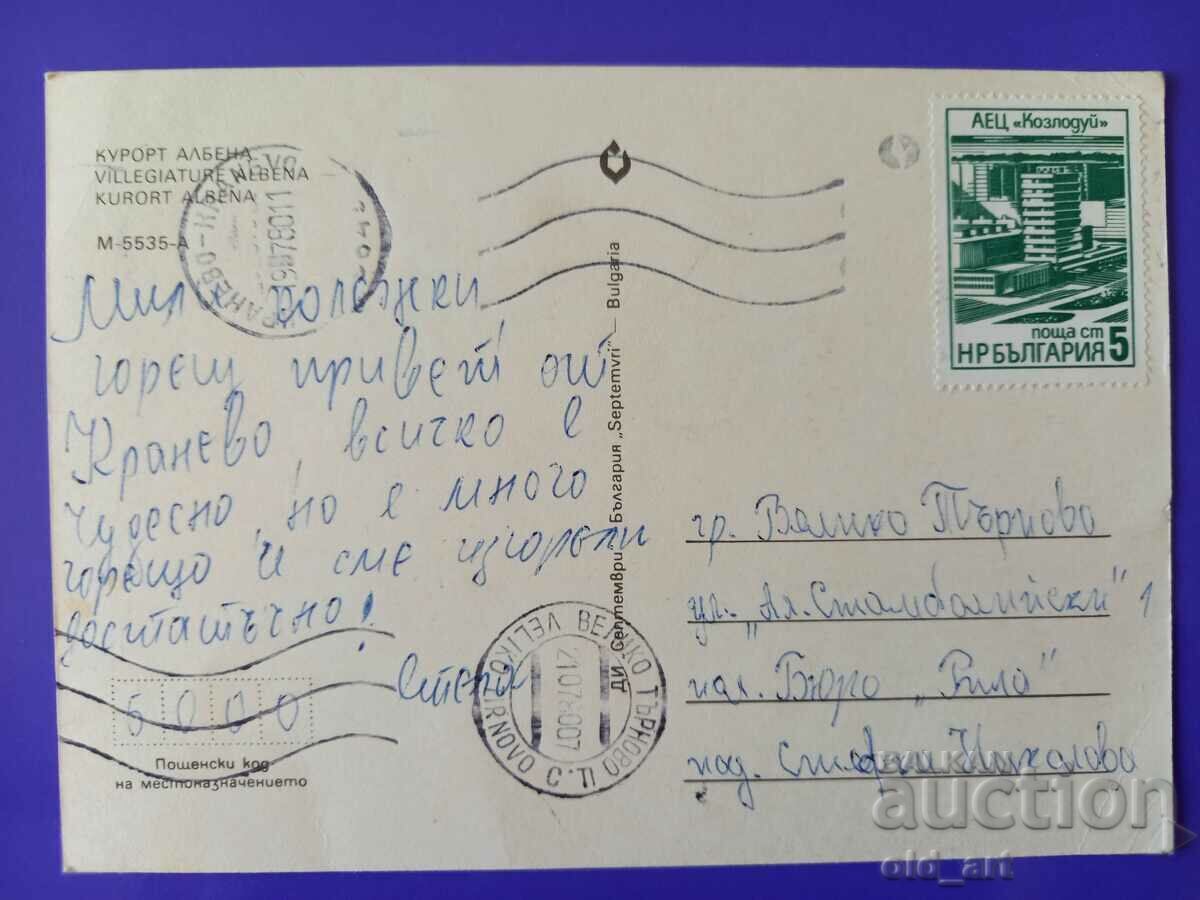 КУРОРТ АЛБЕНА
VILLEGIATURE ALBENA
KURORT ALBENA
М-5535-А
Мили колежки
горещ привет от
Кранево, всичко е
чудесно, но е много
горещо и сме изгорели
достатъчно!
5000
Пощенски код
на местоназначението
ДИ „Септември" България „Septemvri" — Bulgaria
ВЕЛИКО ТЪРНОВО Ц.
VELIKO TURNOVO C.
21.07.80 07
АЕЦ «Козлодуй»
поща ст
НР БЪЛГАРИЯ 5
гр. Велико Търново
ул. „Ал. Стамболийски" 1
Бюро „Рила"
Николова
auction
old_art